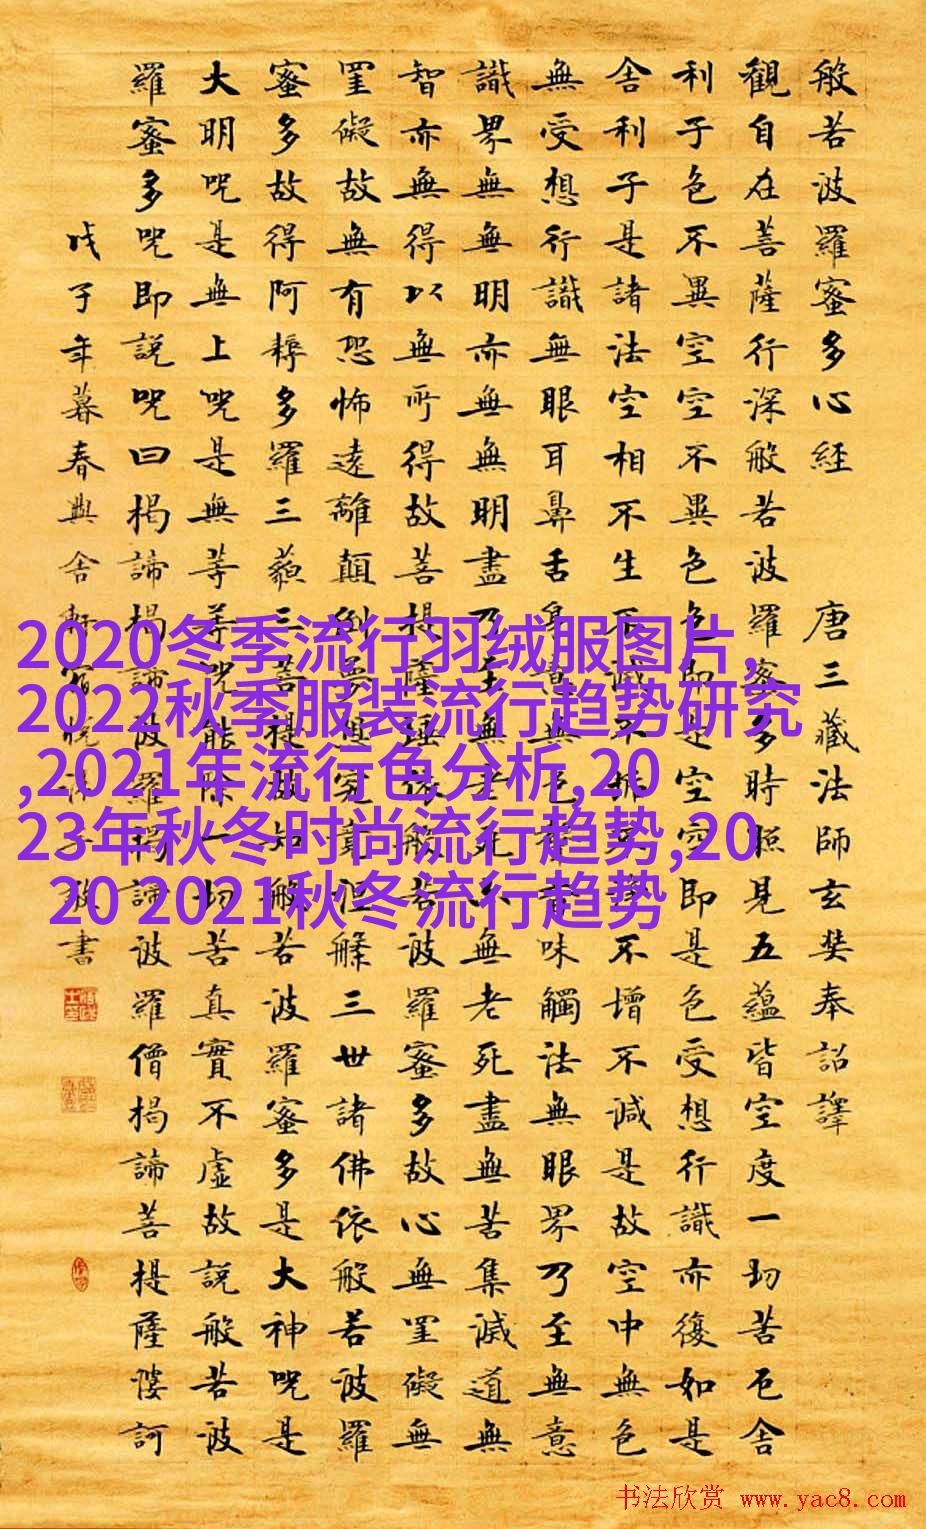 般若波羅蜜多心經 唐三藏法師玄奘奉詔譯
觀自在菩薩行深般若波羅蜜多時照見五蘊皆空度一切苦厄舍
利子色不異空空不異色色即是空空即是色受想行識亦復如是
舍利子是諸法空相不生不滅不垢不淨不增不減是故空中無色
無受想行識無眼耳鼻舌身意無色聲香味觸法無眼界乃至無意
識界無無明亦無無明盡乃至無老死亦無老死盡無苦集滅道無
智亦無得以無所得故菩提薩埵依般若波羅蜜多故心無罣礙無
罣礙故無有恐怖遠離顛倒夢想究竟涅槃三世諸佛依般若波羅
蜜多故得阿耨多羅三藐三菩提故知般若波羅蜜多是大神咒是
大明咒是無上咒是無等等咒能除一切苦真實不虛故說般若波
羅蜜多咒即說咒曰揭諦揭諦波羅揭諦波羅僧揭諦菩提薩婆訶
戊子年暮春興舍軒敬書
2020冬季流行羽绒服图片,
2022秋季服装流行趋势研究
,2021年流行色分析,20
23年秋冬时尚流行趋势,20
20 2021秋冬流行趋势
书法欣赏 www.yac8.com